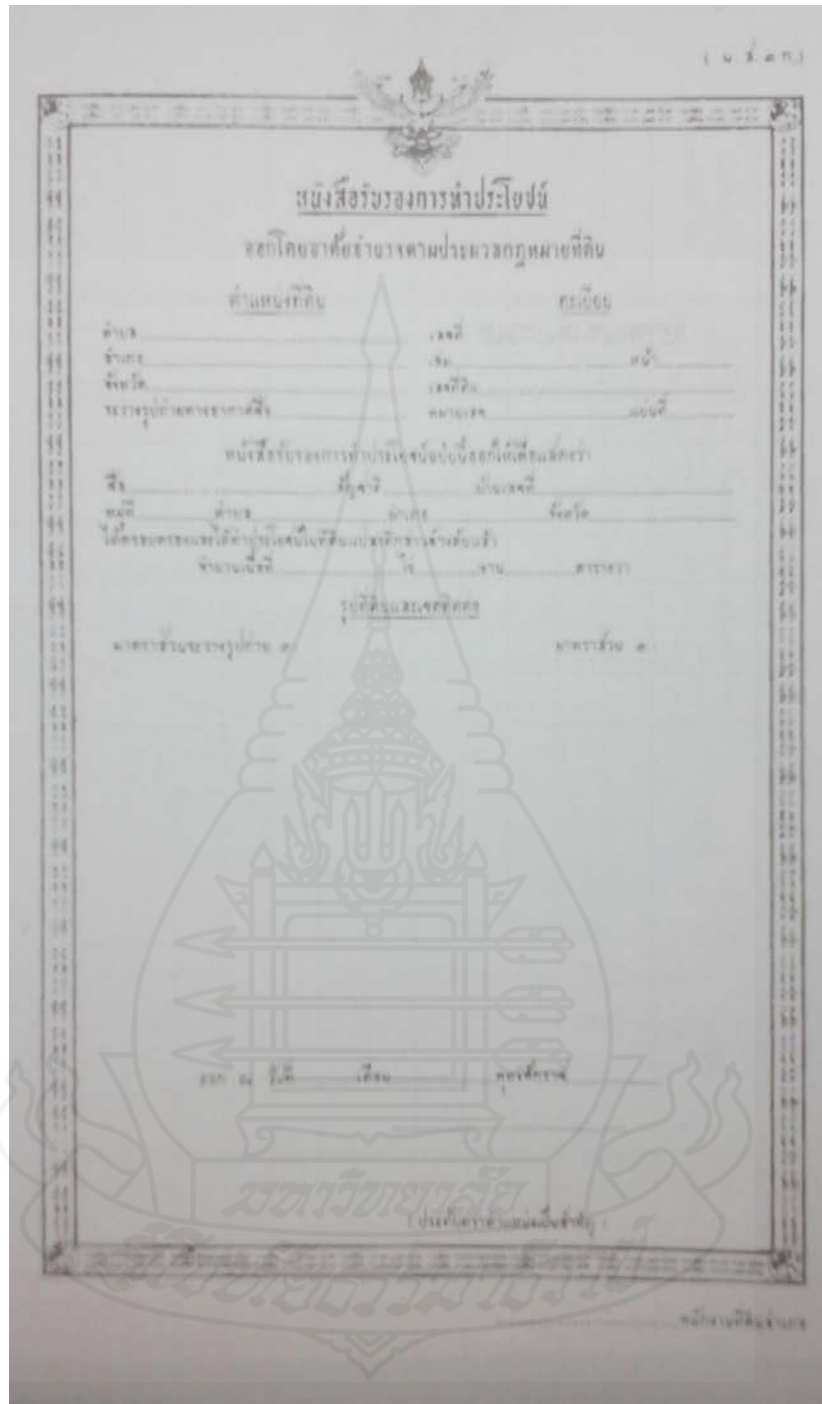 ( น.ส.๓ ก.)
หนังสือรับรองการทำประโยชน์
ออกโดยอาศัยอำนาจตามประมวลกฎหมายที่ดิน
ตำแหน่งที่ดิน ทะเบียน
ตำบล เลขที่
อำเภอ เล่ม หน้า
จังหวัด เลขที่ดิน
ระวางรูปถ่ายทางอากาศชื่อ หมายเลข แผ่นที่
หนังสือรับรองการทำประโยชน์ฉบับนี้ออกให้เพื่อแสดงว่า
ชื่อ สัญชาติ บ้านเลขที่
หมู่ที่ ตำบล อำเภอ จังหวัด
ได้ครอบครองและได้ทำประโยชน์ในที่ดินแปลงดังกล่าวข้างต้นแล้ว
จำนวนเนื้อที่ ไร่ งาน ตารางวา
รูปที่ดินและเขตติดต่อ
มาตราส่วนระวางรูปถ่าย ๑: มาตราส่วน ๑:
ออก ณ วันที่ เดือน พุทธศักราช
มหาวิทยาลัย
( ประทับตราตำแหน่งเป็นสำคัญ )
สุโขทัยธรรมาธิราช
พนักงานที่ดินอำเภอ